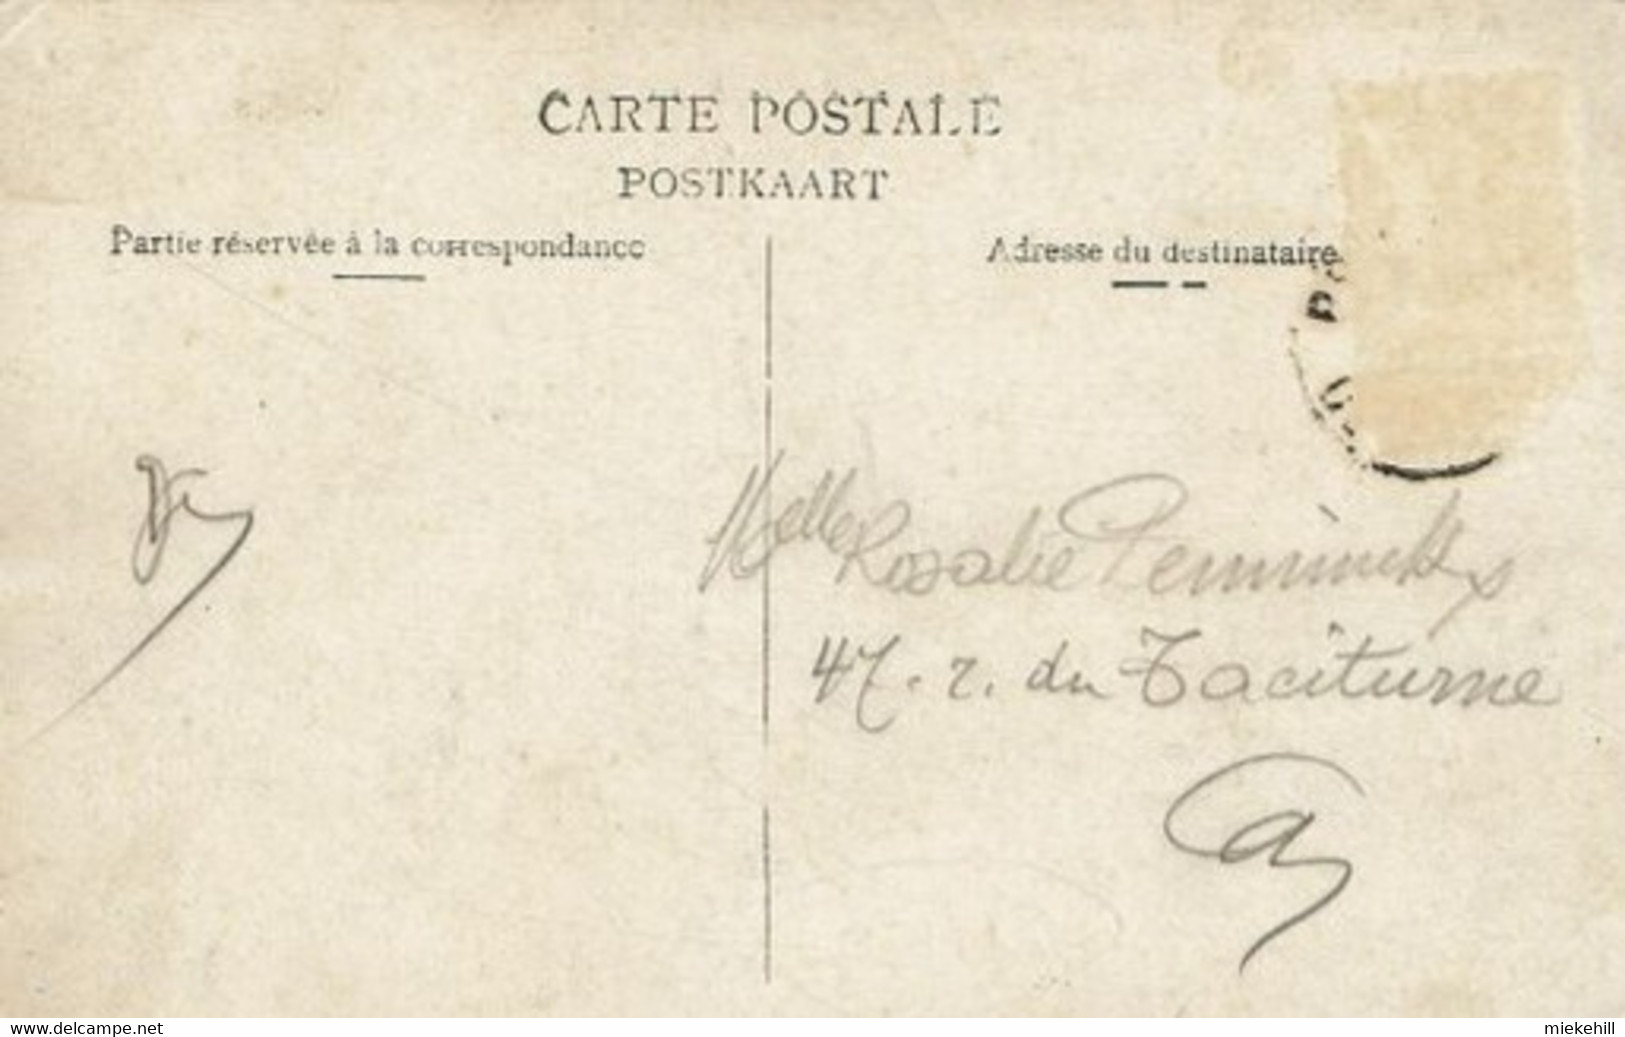 CARTE POSTALE
POSTKAART
Partie réservée à la correspondance
Adresse du destinataire
Melle Rosalie
47. r. du Taciturne
www.delcampe.net
miekehill